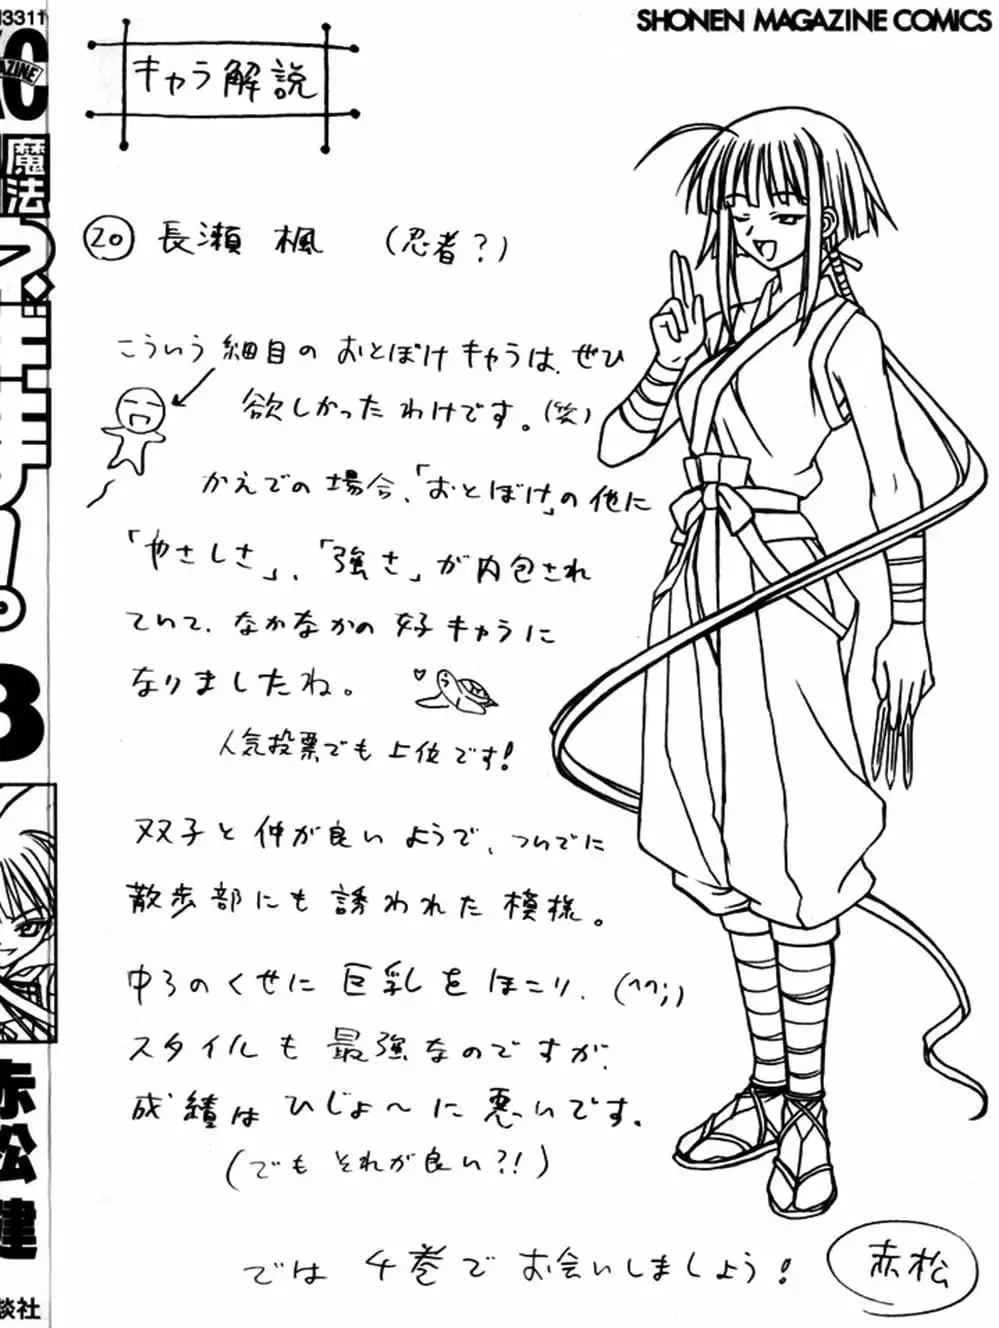 SHONEN MAGAZINE COMICS
キャラ解説
⑳ 長瀬 楓 (忍者?)
こういう細目のおとぼけキャラは、ぜひ
欲しかったわけです。(笑)
かえでの場合、「おとぼけ」の他に
「やさしさ」、「強さ」が内包され
ていて、なかなかの好キャラに
なりましたね。
人気投票でも上位です!
双子と仲が良いようで、ついでに
散歩部にも誘われた模様。
中3のくせに巨乳をほこり、(^^;)
スタイルも最強なのですが、
成績はひじょ〜に悪いです。
(でもそれが良い?!)
では4巻でお会いしましょう!
赤松
3311
AZINE
魔法
ネギま!。
3
赤松健
談社